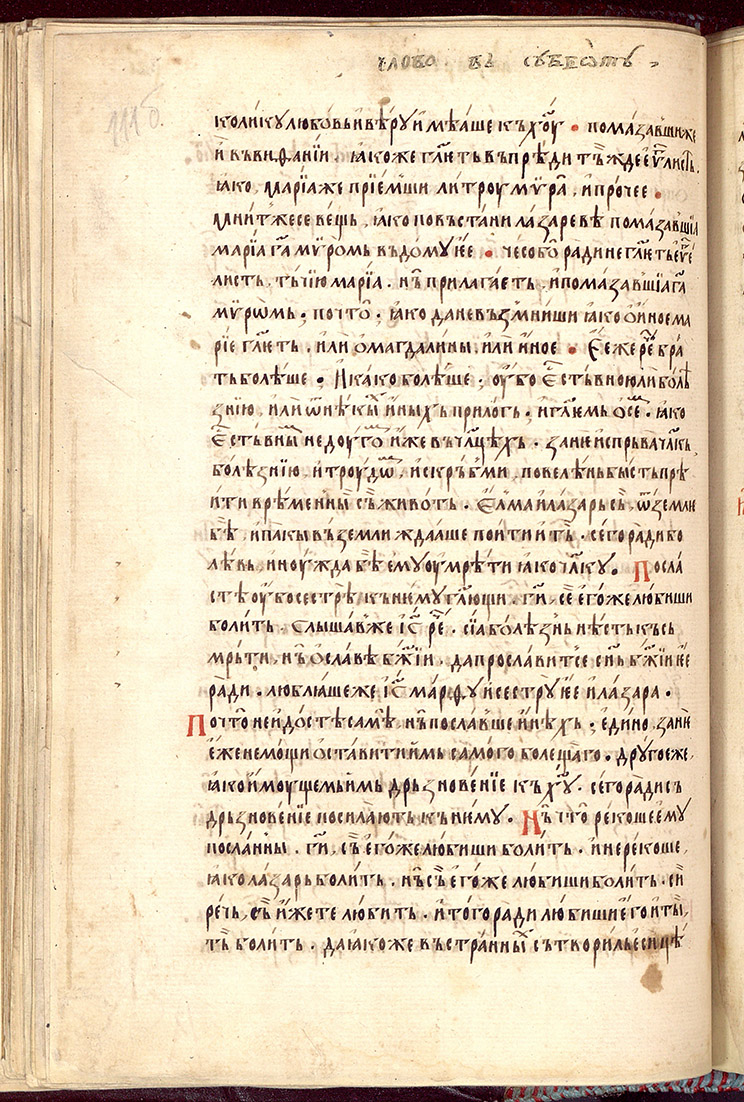 слово въ сѫбѡтѫ
111б
колику любовь и вѣру имѣаше къ хоу҃ • помазавши же
и въ виѳанїи. ꙗкоже гл҃ть въпрѣди тъжде еѵ҃листь.
ꙗко, марїа же прїемши литроу мѵра, и прочее •
мнит же се вещь, ꙗко по въстани лазаревѣ помазавшїа
марїа га҃ мѵромь въ дому ее • чесо бо ради не гл҃ть еѵ҃е
листь, тъчїю марїа. нъ прилагаеть, и помазавшїа га҃
мѵрѡмь; почто; ꙗко да не възмниши ꙗко о иное ма
рїе гл҃ть, или о магдалины, или иное • Еже рѣ бра
ть болѣше • И како болѣше; оубо есть вною ли болѣ
знїю, или ѿ нѣкых иныхь прилогь; и гл҃емь о се. ꙗко
есть вины недоугом иже въ чл҃цѣхь. зане испрьва чл҃кь
болѣзнїю, и троудом, и скръбми, повелѣнь бысть прѣ
ити врѣменныи съ животь. Елма и лазарь съ, ѿ землѥ
бѣ, и пакы въ земли ждааше поити и тъ. сего ради бо
лѣвь, и ноужда бѣ ему оумрѣти ꙗко чл҃ку. Посла
стѣ оубо сестрѣ къ нему гл҃ющи. ги҃, се егоже любиши
болить. слышавже іс҃ рѣ. сїа болѣзнь нѣсть къ съ
мрьти, нь о славѣ бж҃їи, да прославитсе сн҃ь бж҃їи ее
ради. люблꙗше же іс҃ марѳу и сестру ее и лазара.
Почто не идостѣ самѣ, нъ пославше инѣхь; едино, зане
еже немощи оставити имь самого болещаго. другое же,
ꙗко имоущемь имь дрьзновенїе къ хоу҃. сего ради съ
дрьзновенїе посилають къ нему. Нъ что рекоше ему
посланны. ги҃, съ егоже любиши болить. и не рекоше,
ꙗко лазарь болить. нъ съ егоже любиши болить. си
рѣчь, съ иже те любить. и того ради любиши его и ты,
тъ болить. да ꙗкоже въ странных сътвориль еси цѣ